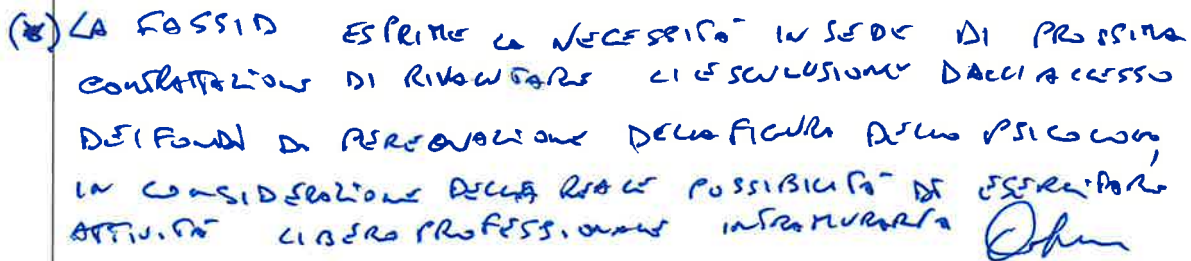 (*) LA FASSID ESPRIME LA NECESSITÀ IN SEDE DI PROSSIMA
CONTRATTAZIONE DI RIVALUTARE L'ESCLUSIONE DALL'ACCESSO
DEI FONDI DI PEREQUAZIONE DELLA FIGURA DELLO PSICOLOGO,
IN CONSIDERAZIONE DELLA REALE POSSIBILITÀ DI ESERCITARE
ATTIVITÀ LIBERO PROFESSIONALE INTRAMURARIA